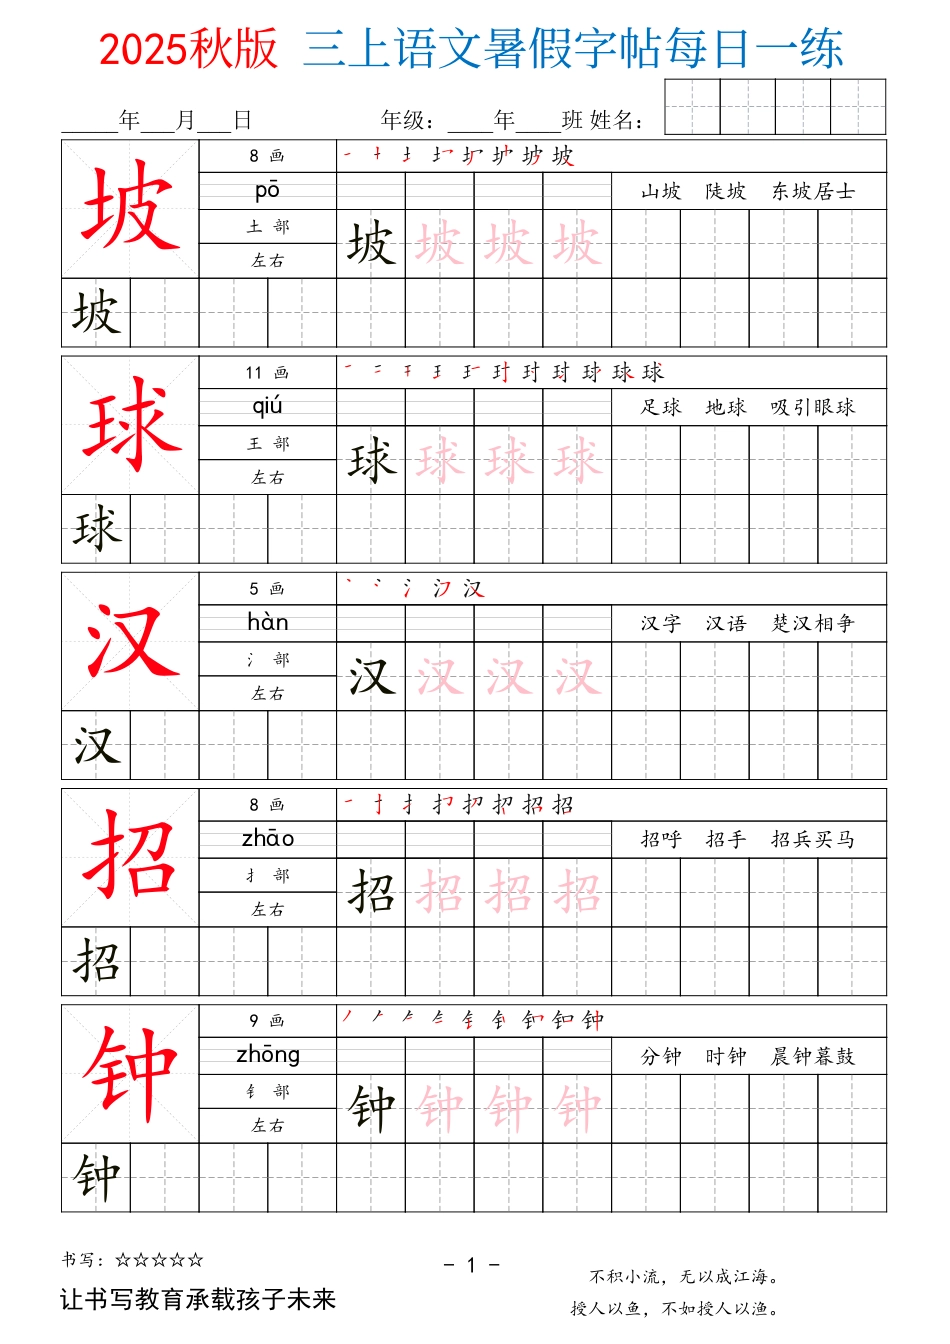 2025秋版 三上语文暑假字帖每日一练
_____年___月___日 年级：____年____班 姓名：
坡 8 画
pō 山坡 陡坡 东坡居士
土 部 坡 坡 坡 坡
左右
坡
球 11 画
qiú 足球 地球 吸引眼球
王 部 球 球 球 球
左右
球
汉 5 画
hàn 汉字 汉语 楚汉相争
氵 部 汉 汉 汉 汉
左右
汉
招 8 画
zhāo 招呼 招手 招兵买马
扌 部 招 招 招 招
左右
招
钟 9 画
zhōng 分钟 时钟 晨钟暮鼓
钅 部 钟 钟 钟 钟
左右
钟
书写：☆☆☆☆☆
- 1 -
不积小流，无以成江海。
让书写教育承载孩子未来
授人以鱼，不如授人以渔。